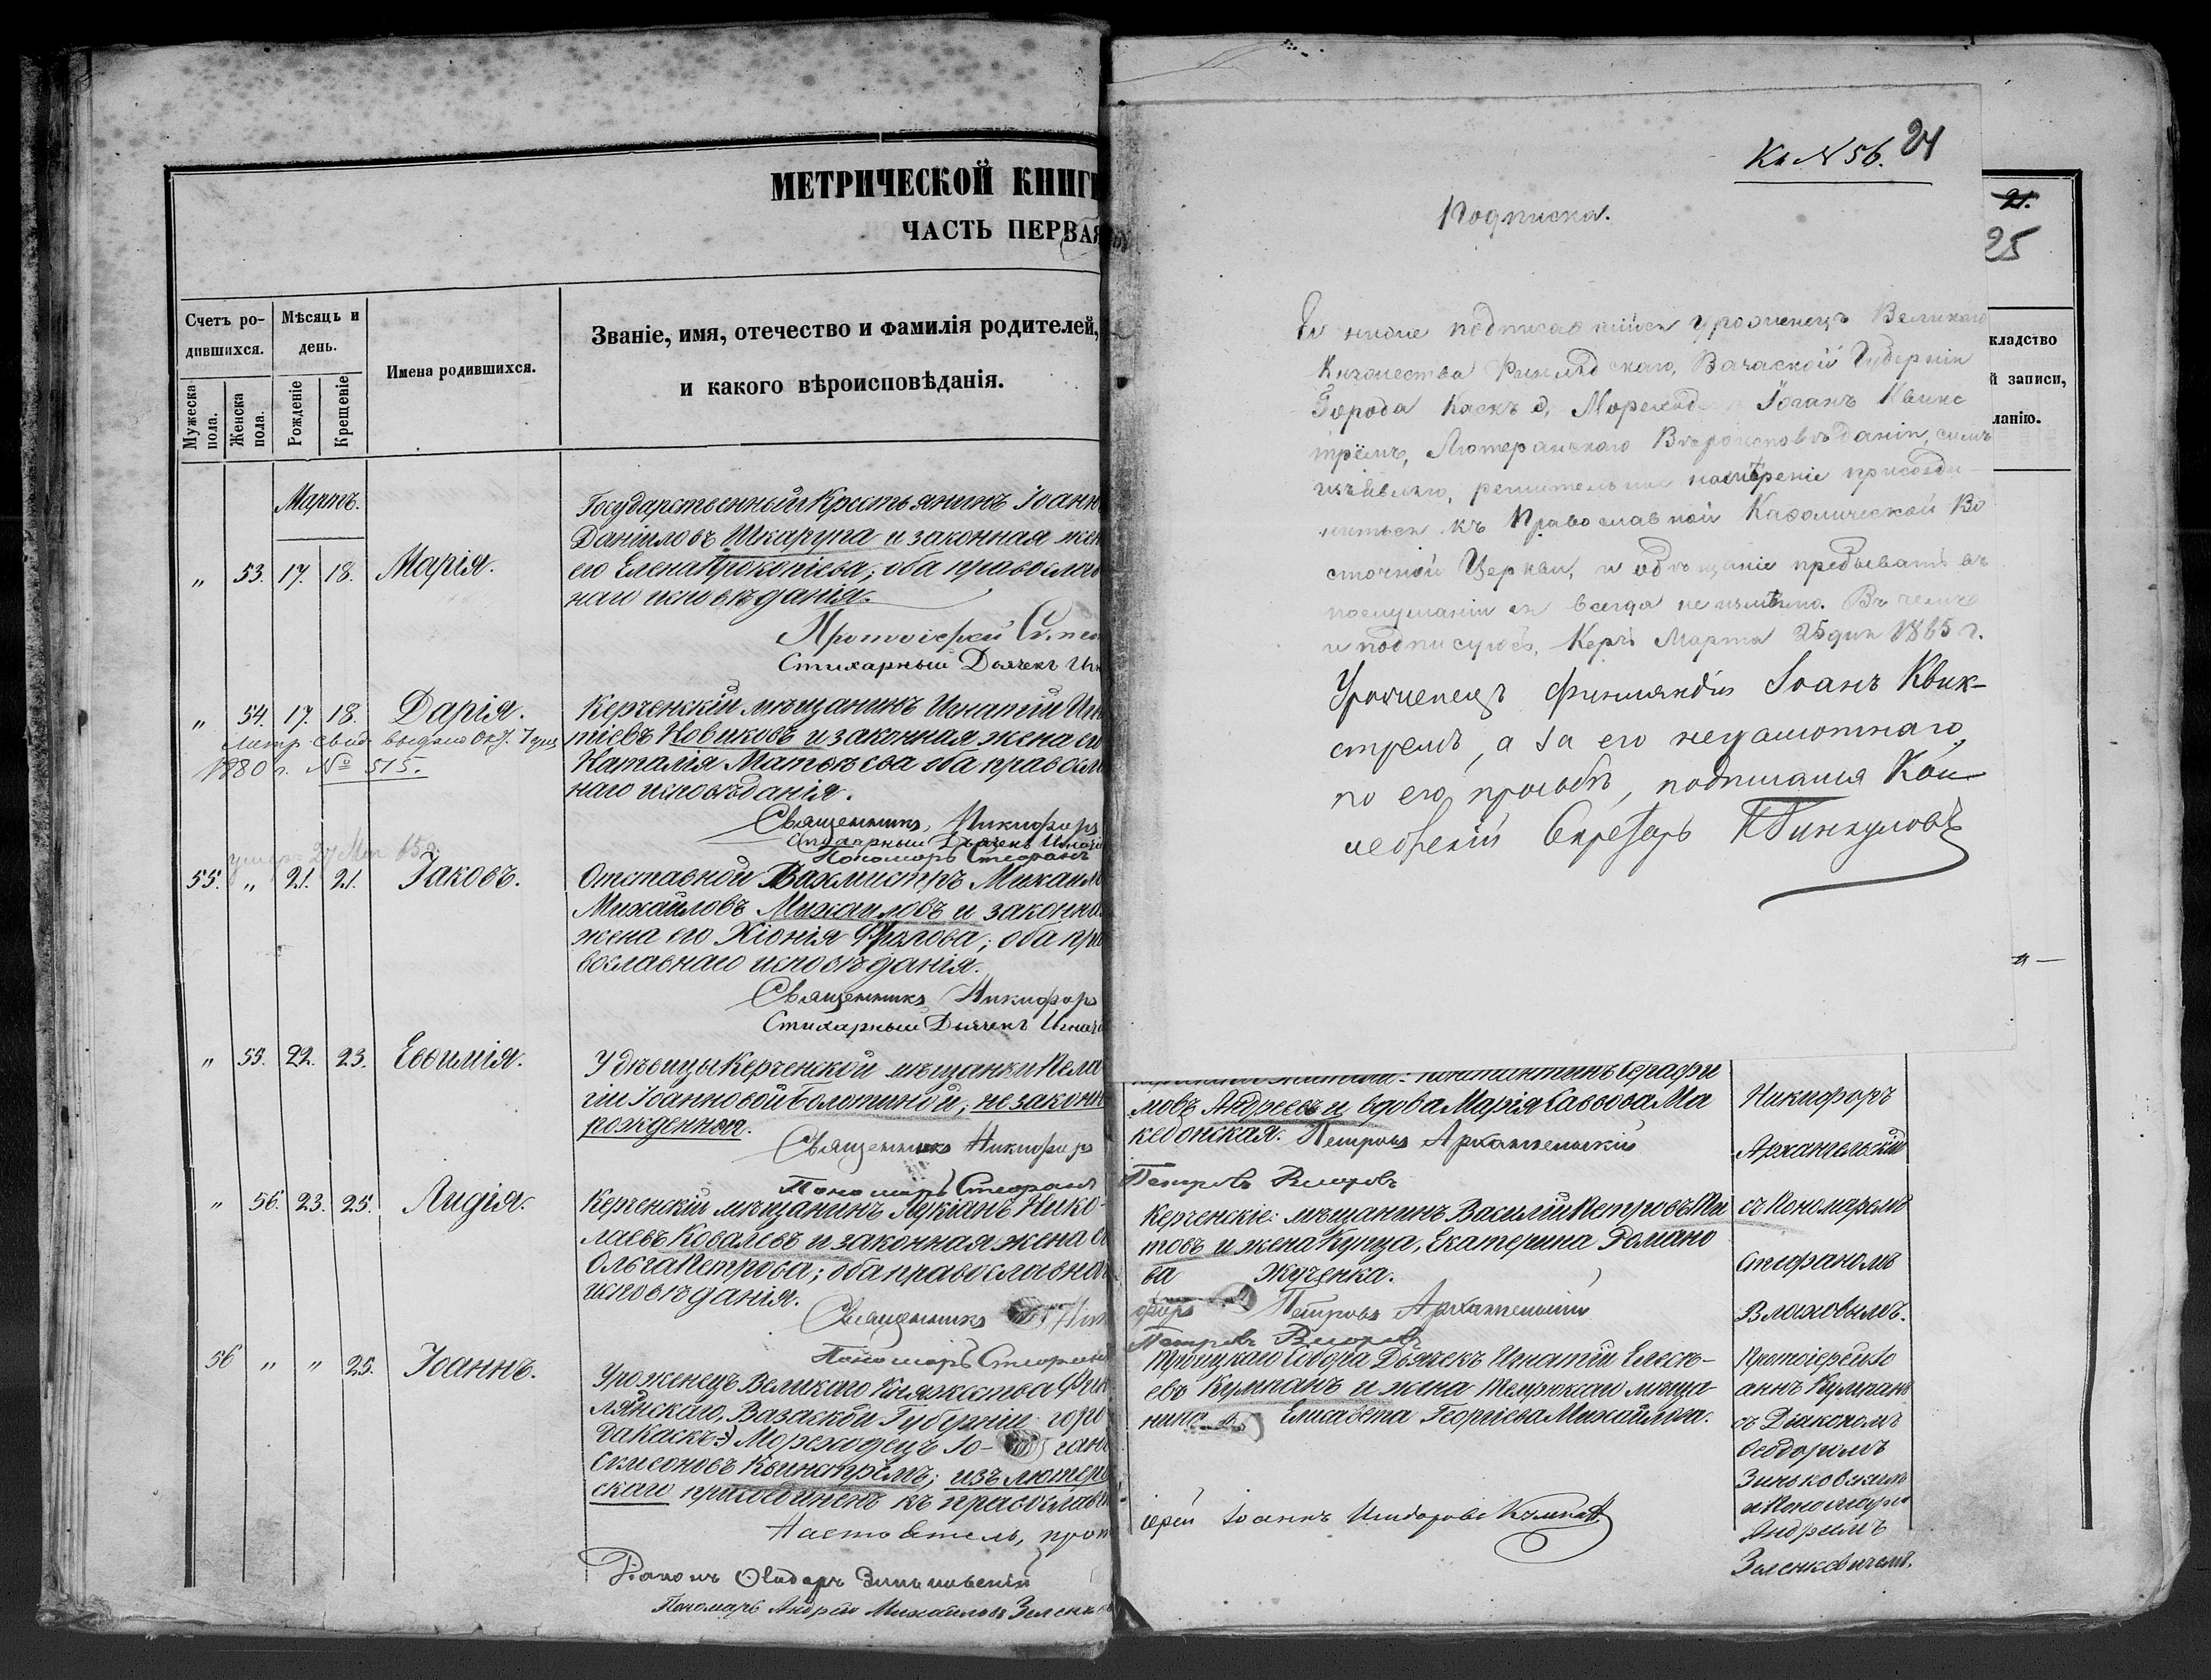 МЕТРИЧЕСКОЙ КНИГИ
ЧАСТЬ ПЕРВАЯ
Счетъ ро-
дившихся.
Мужеска
пола.
Женска
пола.
Мѣсяцъ и
день.
Рожденіе
Крещеніе
Имена родившихся.
Званіе, имя, отечество и фамилія родителей,
и какого вѣроисповѣданія.
Мартъ.
„ 53. 17. 18. Марія.
Государственный Крестьянинъ Іоанн
Даніиловъ Шкарупа и законная жен
его Елена Прокопіева; оба православ
наго исповѣданія.
Протоіерей
Стихарный Дьячекъ Иг
„ 54. 17. 18. Дарія.
Метр. свид. выдано
1880 г. № 515.
Керченскій мѣщанинъ Игнатій Игн
тіевъ Новиковъ и законная жена его
Наталія Матѳѣева оба православ
наго исповѣданія.
Священникъ, Никифоръ
Стихарный Дьячекъ Игнатій
Пономарь Стефанъ
умеръ 27 65 г.
55. „ 21. 21. Іаковъ.
Отставной Вахмистръ Михаилъ
Михайловъ Михайловъ и законна
жена его Хіонія Фролова; оба пра
вославнаго исповѣданія.
Священникъ Никифоръ
Стихарный Дьячекъ Игнатій
„ 55. 22. 23. Евѳимія.
У дѣвицы Керченской мѣщанки Пела
гіи Іоанновой Болотиной, незаконн
рожденная.
Священникъ Никифоръ
Пономарь Стефанъ
„ 56. 23. 25. Лидія.
Керченскій мѣщанинъ Лукіанъ Нико-
лаевъ Ковалевъ и законная жена е
Ольга Петрова; оба православнаг
исповѣданія.
Священникъ Ник
Пономарь Стефанъ
56 „ „ 25. Іоаннъ.
Уроженецъ Великаго Княжества Фин
ляндскаго, Вазаской Губерніи горо
да Каскъ Мореходецъ Іо- ганъ
Симеоновъ Квикстремъ; изъ лютера
скаго присоединенъ къ православі
Настоятель, прот
Діаконъ Ѳеодоръ Зиньковскій
Пономарь Андрей Михайловъ Зеленк
Къ N 56. 24
Подписка.
Я ниже подписавшійся уроженецъ Великаго
Княжества Финляндскаго, Вазаской Губерніи
Города Каскъ Мореход Іоганъ Квикс
трёмъ, Лютеранскаго Вѣроисповѣданія, симъ
изъявляю, решительное намѣреніе присоеди-
ниться къ Православной Каѳолической Во
сточной Церкви, и обѣщаніе пребывать въ
послушаніи ея всегда неизмѣнно. Въ чемъ
и подписуюсь, Керчь Марта 25 дня 1865 г.
Уроженецъ Финляндіи Іоанъ Квик-
стремъ, а за его неграмотнаго,
по его просьбѣ, подписался Кон-
Секретарь
21.
25
кладство
й записи,
ланію.
„ —
мовъ Андреевъ и вдова Марія Саввова Ма
кедонская. Петровъ Архангельскій
Петровъ Власовъ
Никифоръ
Архангельскій
Керченскіе: мѣщанинъ Василій Петровъ Ти
товъ и жена Купца, Екатерина Романо
ва Жученка.
форъ Петровъ Архангельскій
Петровъ Власовъ
съ Пономаремъ
Стефаномъ
Власовымъ.
Троицкаго Собора Дьячекъ Игнатій Елисѣ-
евъ Кумпанъ и жена Темрюкскаго мѣща
нина Елисавета Георгіева Михайлова.
ерей Іоаннъ Исидоровъ Кумпанъ
Протоіерей Іо
аннъ Кумпанъ
съ Діакономъ
Ѳеодоромъ
Зиньковскимъ
и Пономаремъ
Андреемъ
Зеленкевичемъ.